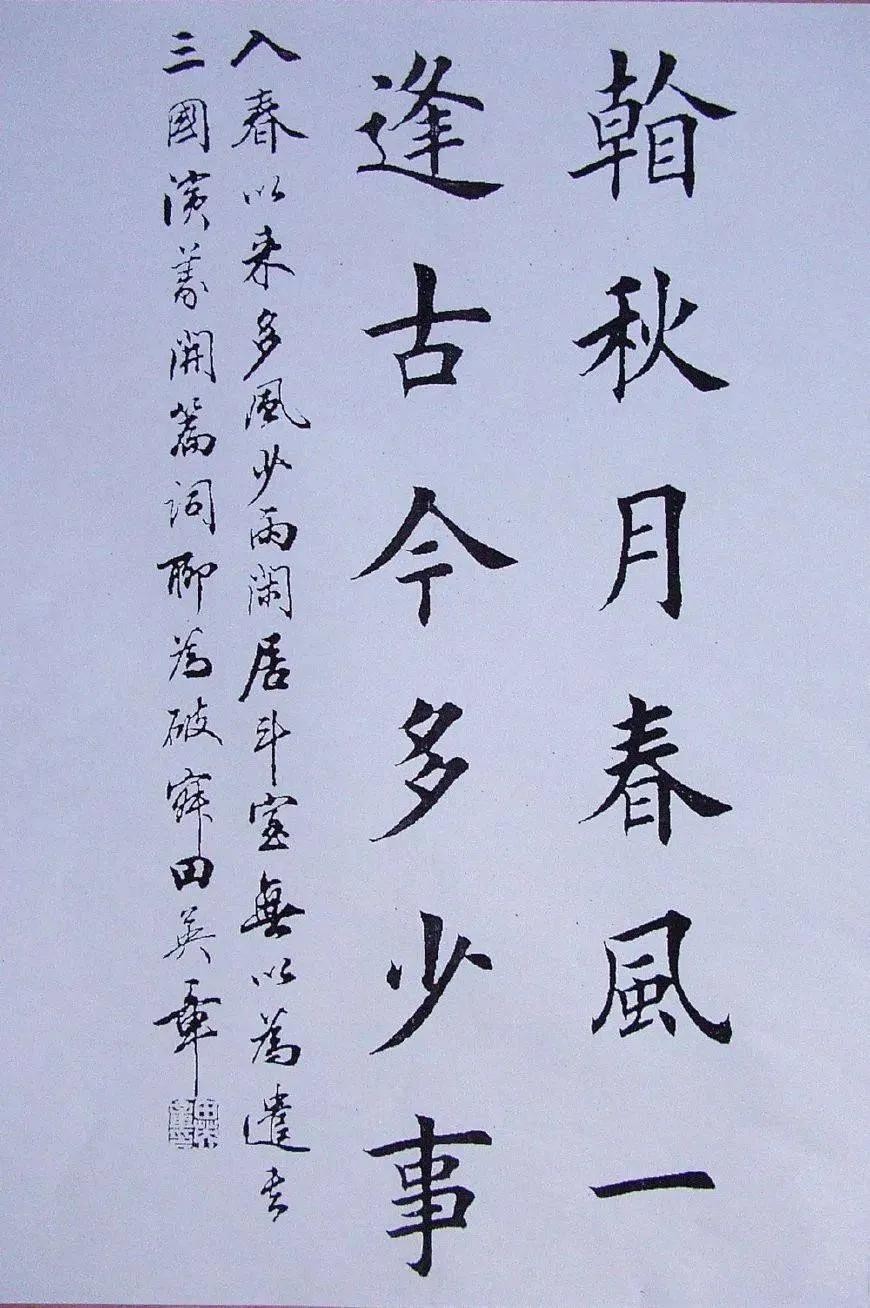 看秋月春風一
逢古今多少事
入春以来多風少雨閑居斗室無以為遣書
三國演義開篇詞聊為破寂田英章